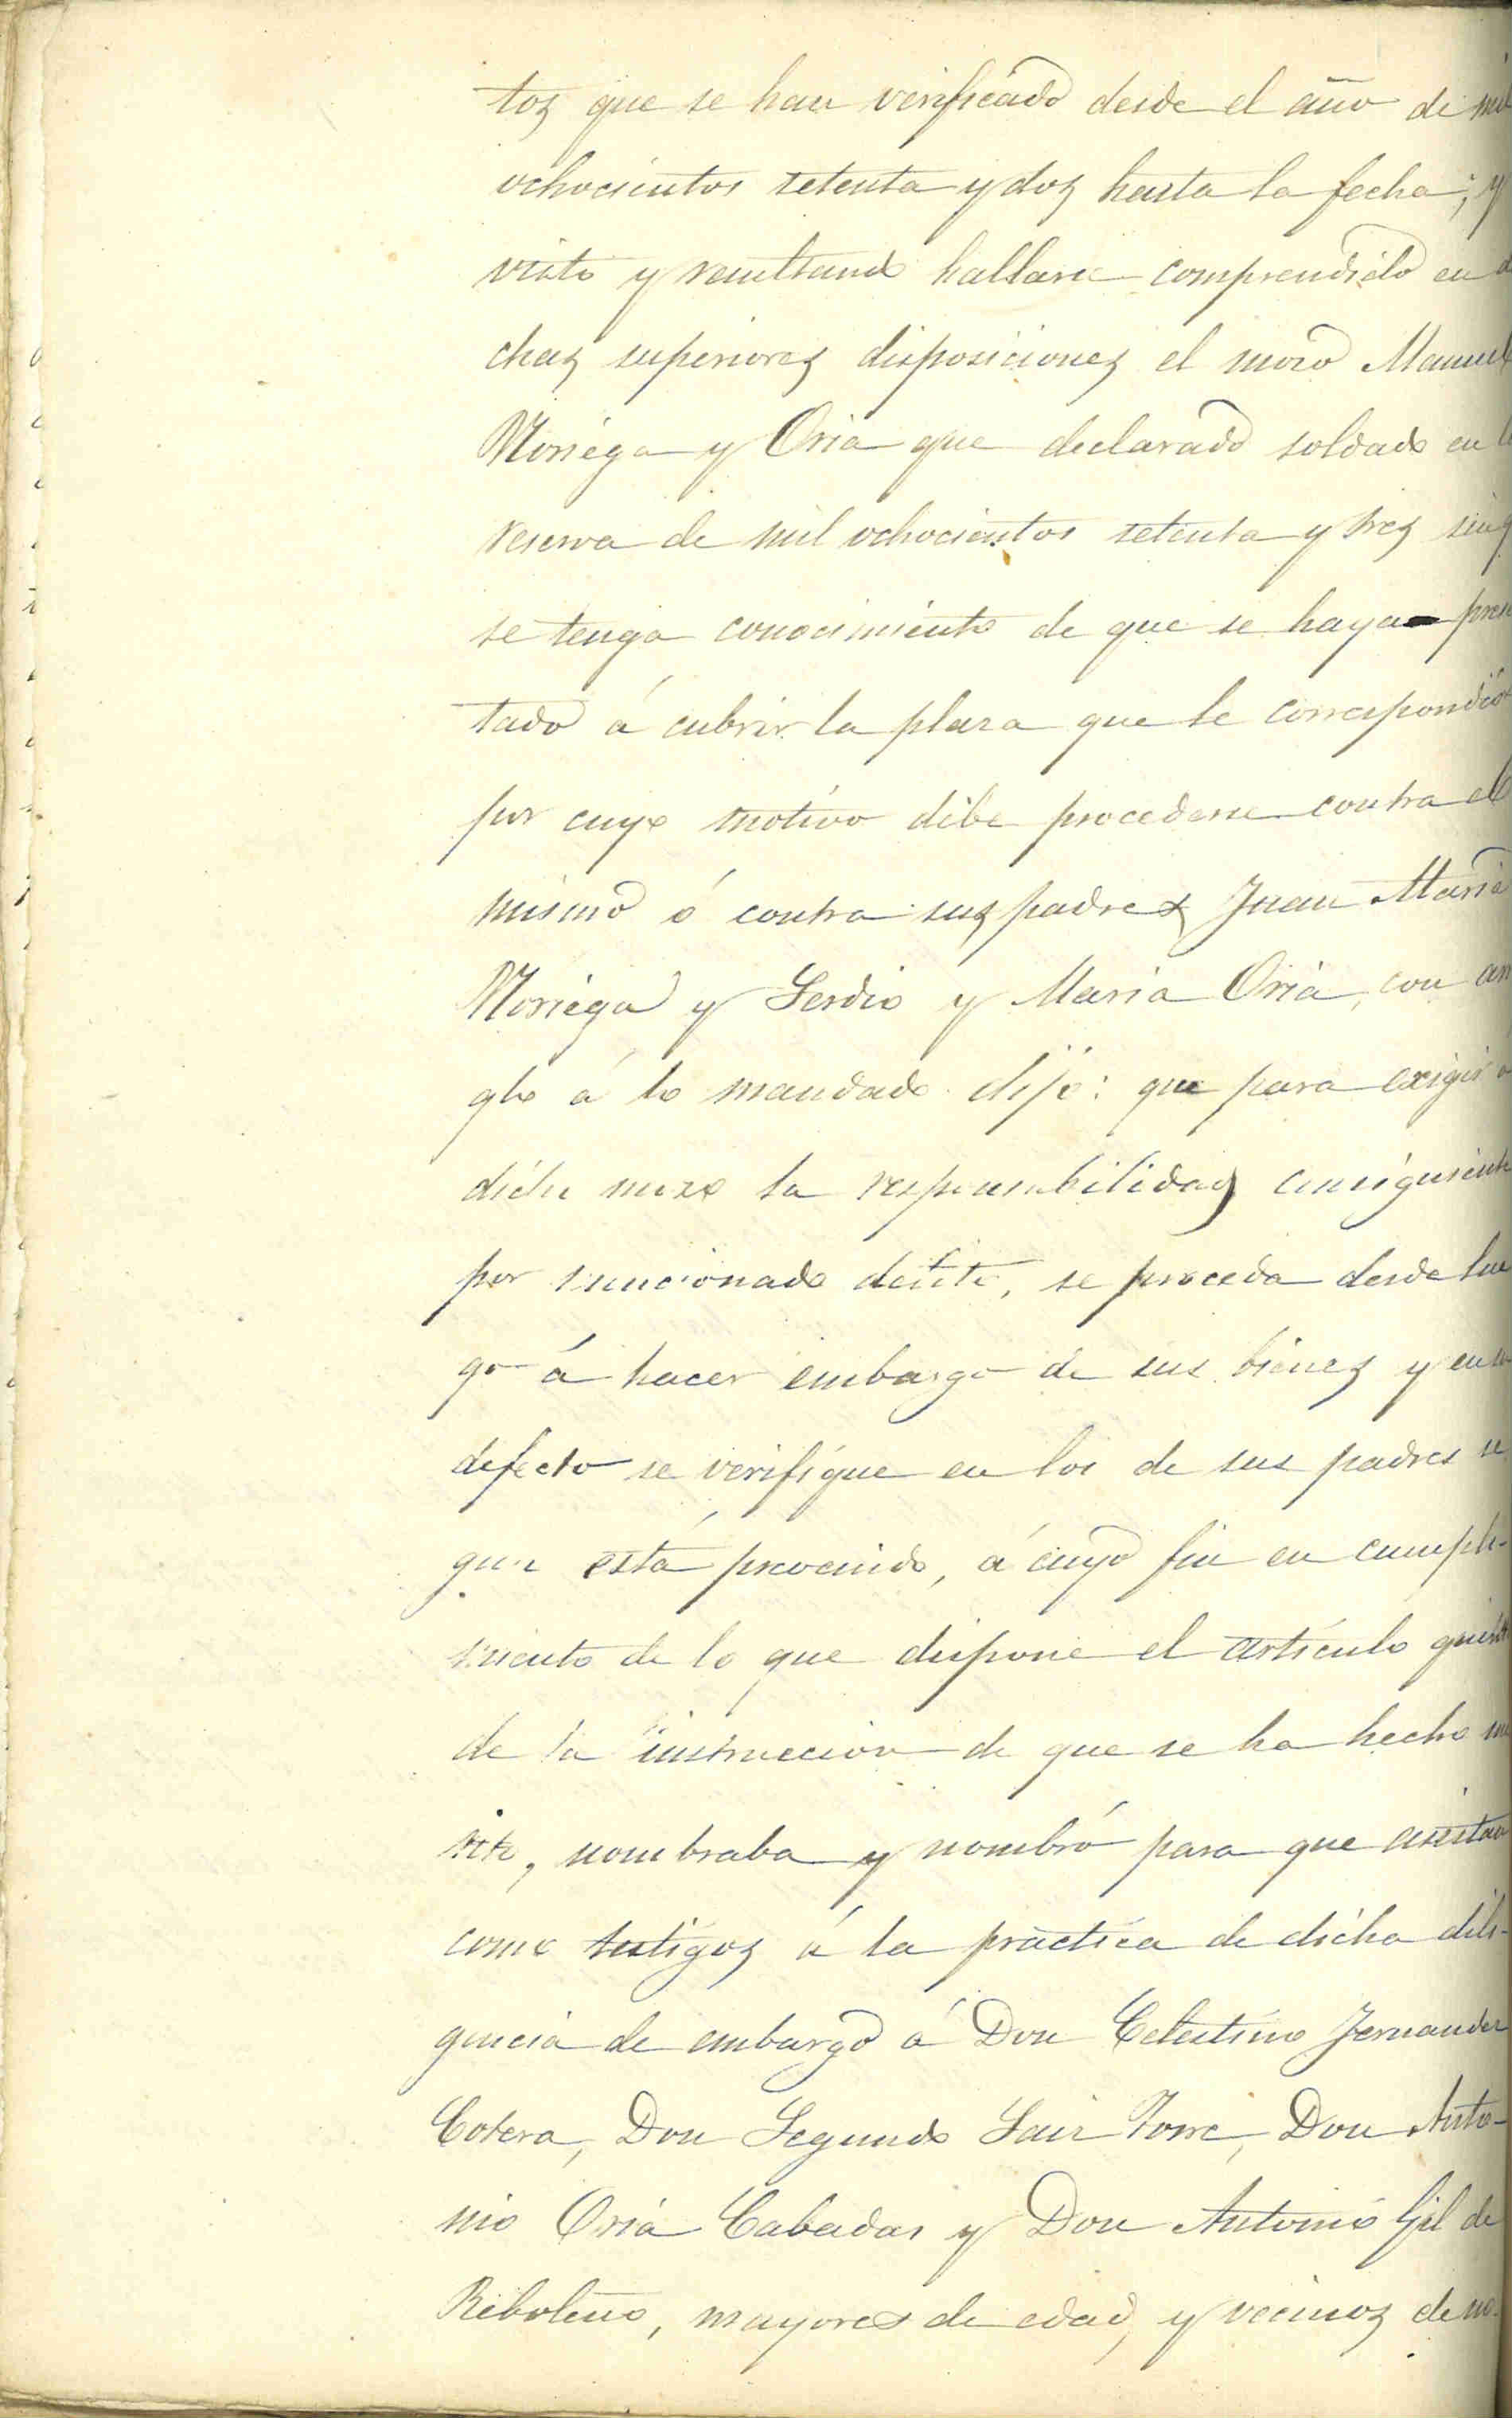 tos que se han verificado desde el año de mil
ochocientos setenta y dos hasta la fecha; y
visto y resultando hallarse comprendido en di
chas superiores disposiciones el mozo Manuel
Noriega y Oria que declarado soldado en la
reserva de mil ochocientos setenta y tres sin q
se tenga conocimiento de que se haya presen
tado á cubrir la plaza que le correspondió
por cuyo motivo debe procederse contra el
mismo ó contra sus padres Juan Maria
Noriega y Serdio y Maria Oria, con arre
glo á lo mandado dijo: que para exigir á
dicho mozo la responsabilidad consiguiente
por mencionado delito, se proceda desde lue
go á hacer embargo de sus bienes y en su
defecto se verifique en los de sus padres se
gun está prevenido, á cuyo fin en cumpli-
miento de lo que dispone el artículo quinto
de la instruccion de que se ha hecho mé
rito, nombraba y nombró para que asistan
como testigos á la práctica de dicha dili-
gencia de embargo á Don Celestino Fernandez
Cotera, Don Segundo Sainz Torre, Don Anto-
nio Oria Cabadas y Don Antonio Gil de
Reboleño, mayores de edad, y vecinos de